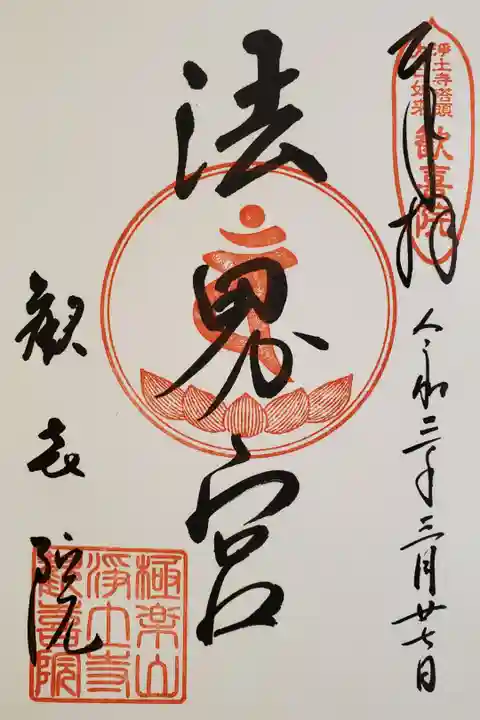 奉拝
令和三年三月廿七日
浄土寺塔頭
歓喜院
法界宮
歓喜院
極楽山
浄土寺
歓喜院